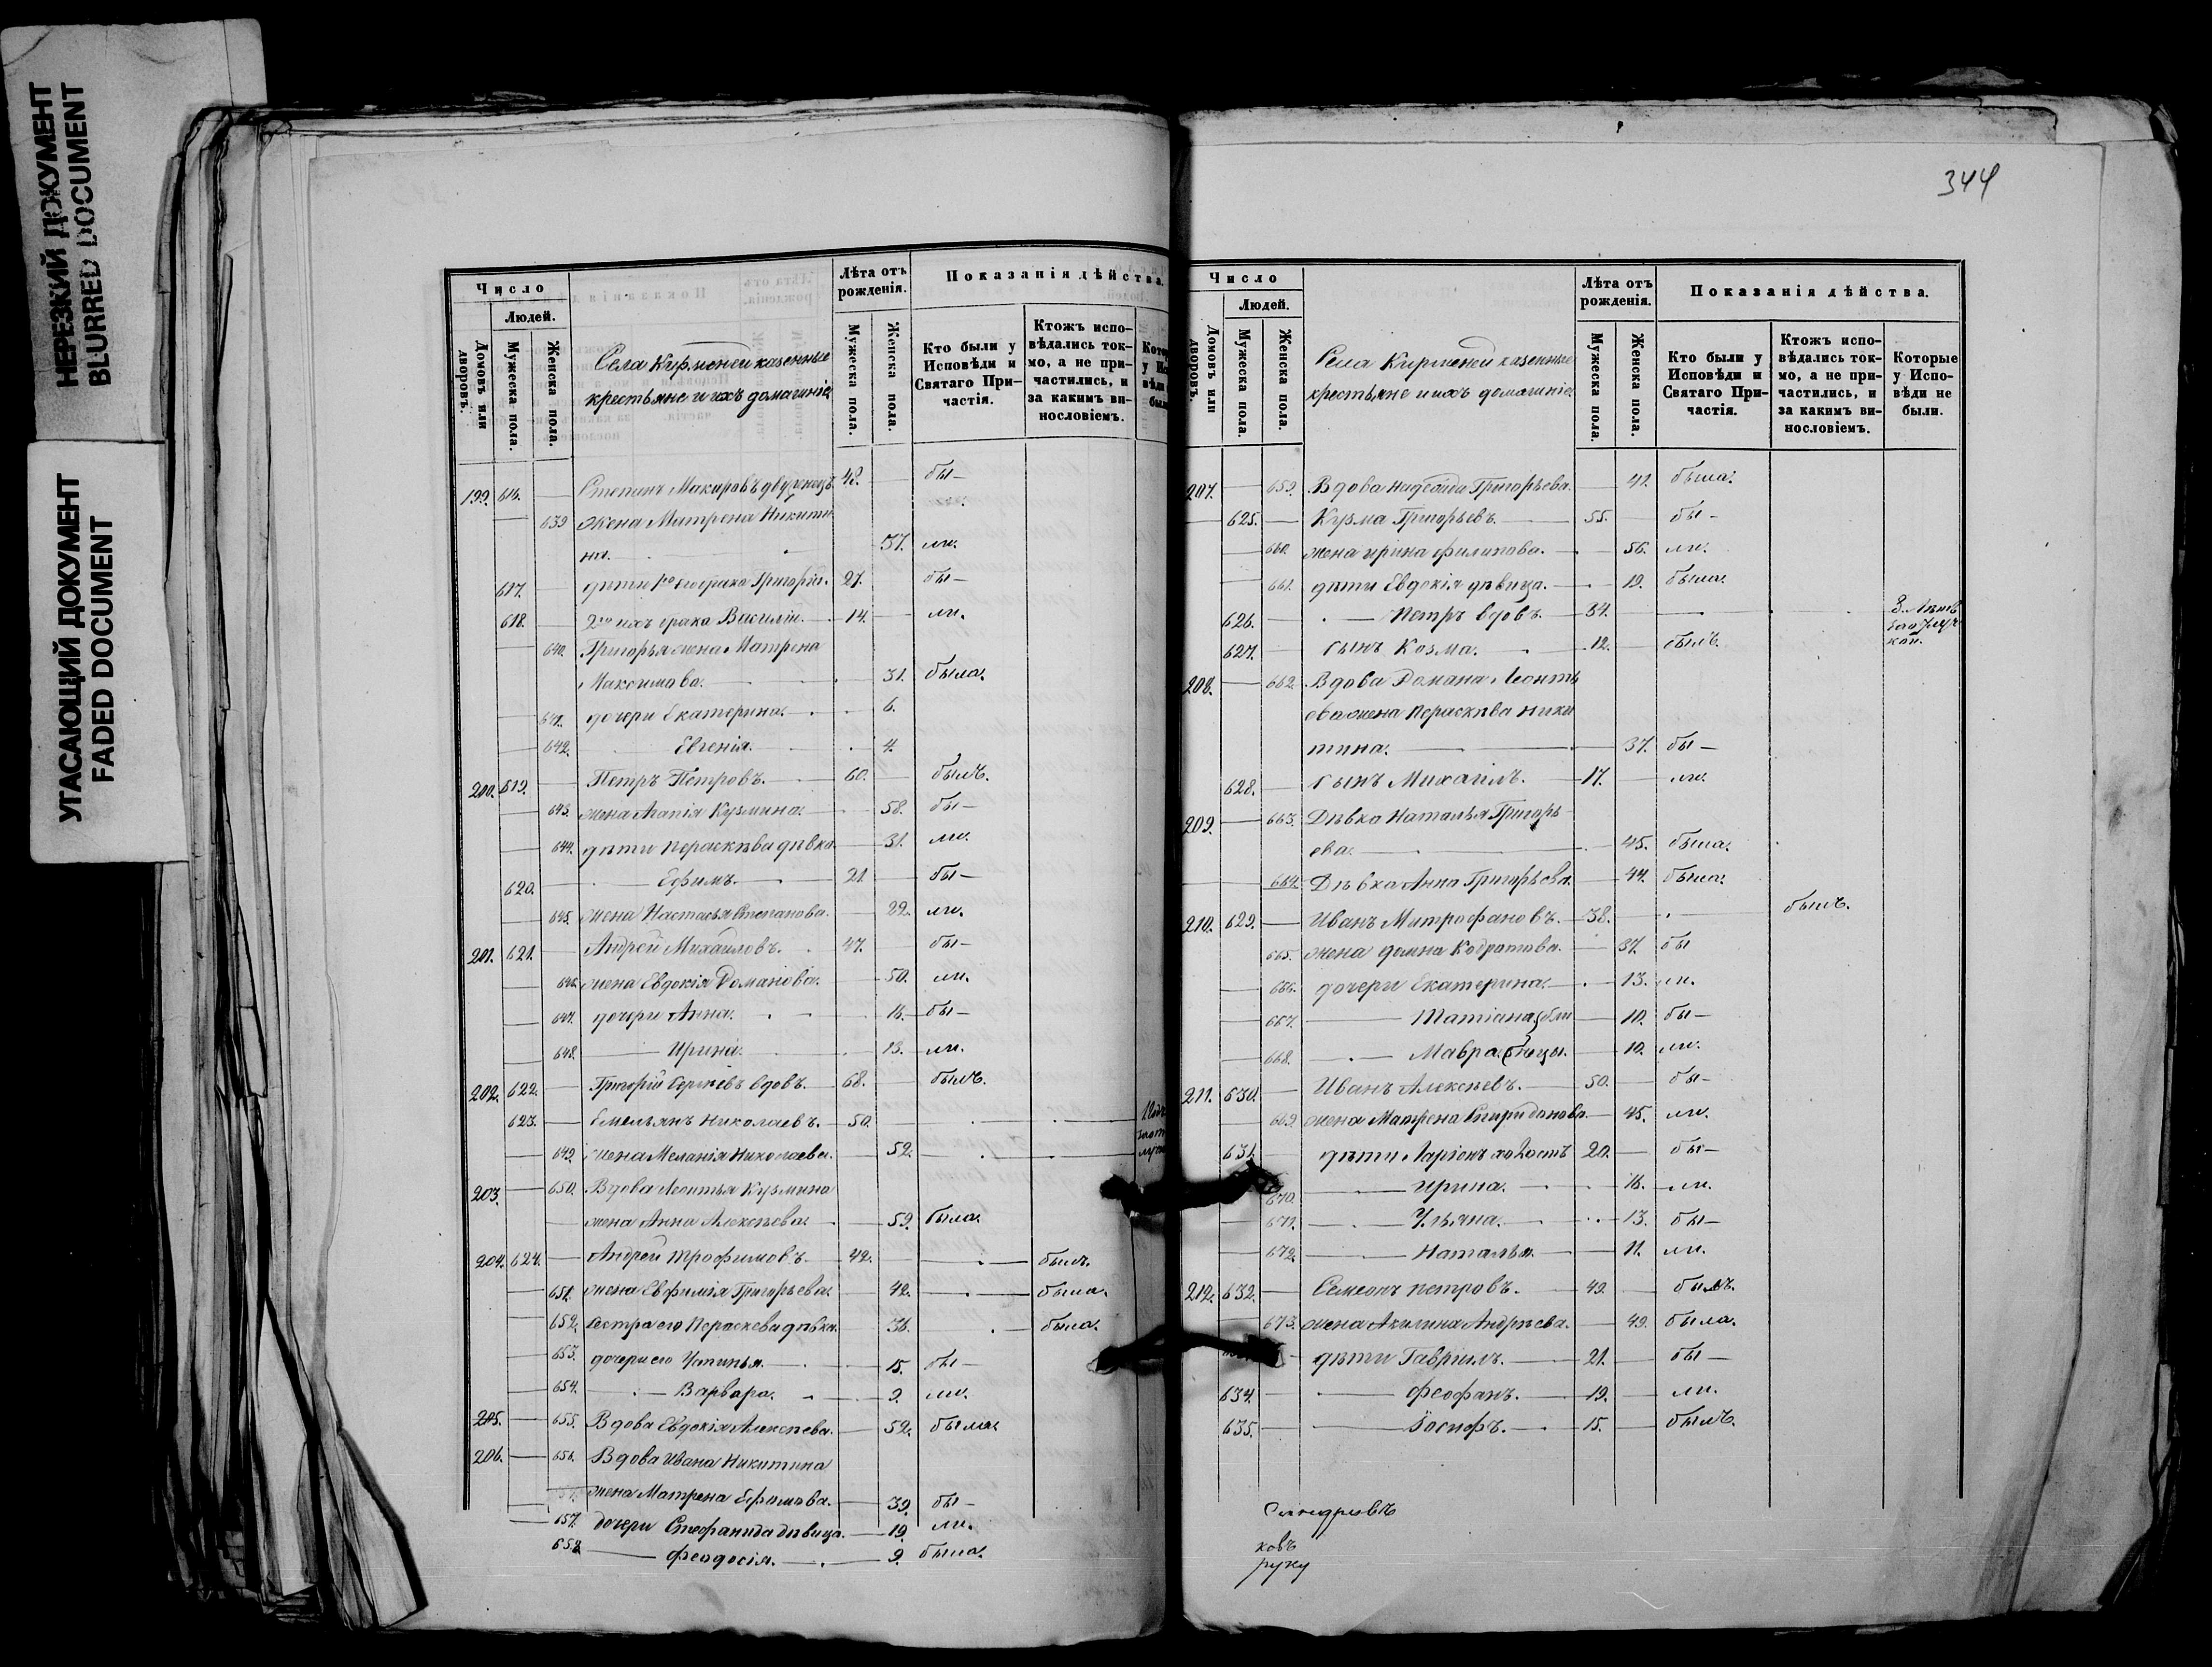 НЕРЕЗКИЙ ДОКУМЕНТ
BLURRED DOCUMENT
УГАСАЮЩИЙ ДОКУМЕНТ
FADED DOCUMENT
Число
Людей.
Домовъ или дворовъ.
Мужеска пола.
Женска пола.
Села Кирменей казенные
крестьяне и ихъ домашніе
Лѣта отъ рожденія.
Мужеска пола.
Женска пола.
Показанія дѣйства.
Кто были у Исповѣди и Святаго При-частія.
Ктожъ испо-вѣдались ток-мо, а не при-частились, и за какимъ ви-нословіемъ.
199. 616. Степанъ Макаровъ 48. бы-
639 жена Матрена Никити
на. 57. ли.
617. дѣти 1го брака Григорій. 27. бы-
618. 2го ихъ брака Василій. 14. ли.
640. Григорья жена Матрена
Максимова. 31. была.
641. дочери Екатерина. 6.
642. Евгенія. 4.
200. 619. Петръ Петровъ. 60. былъ.
643. жена Агапія Кузмина. 58. бы-
644. дѣти Пераскѣва дѣвка 31. ли.
620. Ефимъ. 21. бы-
645. жена Настасья Степанова. 22. ли.
201. 621. Андрей Михаиловъ. 47. бы-
646. жена Евдокія Романова. 50. ли.
647. дочери Анна. 16. бы-
648. Ирина. 13. ли.
202. 622. Григорій Сергіевъ вдовъ. 68. былъ.
623. Емельянъ Николаевъ. 50.
649. жена Меланія Николаева. 52.
203. 650. Вдова Леонтья Кузмина
жена Анна Алексѣева 59. была.
204. 624. Андрей Трофимовъ 42. былъ.
651. жена Евфимія Григорьева. 42. была.
652. сестра его Пераскева дѣвка. 36. была.
653. дочери его Устинья. 15. бы-
654. Варвара. 9. ли.
205. 655. Вдова Евдокія Алексѣева. 52. была.
206. 656. Вдова Ивана Никитина
жена Матрена Ефимова. 39. бы-
657. дочери Стефанида дѣвица. 19. ли.
658. Феодосія. 9. была.
344
Число
Людей.
Домовъ или дворовъ.
Мужеска пола.
Женска пола.
Села Кирменей казенные
крестьяне и ихъ домашніе
Лѣта отъ рожденія.
Мужеска пола.
Женска пола.
Показанія дѣйства.
Кто были у Исповѣди и Святаго При-частія.
Ктожъ испо-вѣдались ток-мо, а не при-частились, и за какимъ ви-нословіемъ.
Которые у Испо-вѣди не были.
207. 659. Вдова Надежда Григорьева. 42. была.
625. Кузма Григорьевъ. 55. бы-
660. жена Ирина Филипова. 56. ли.
661. дѣти Евдокія дѣвица. 19. была.
626. Петръ вдовъ. 34.
627. сынъ Козма. 12. былъ.
208. 662. Вдова Романа Леонть
ева жена Пераскѣва Ники
тина. 37. бы-
628. сынъ Михаилъ. 17. ли.
209. 663. Дѣвка Наталья Григорь-
ева. 45. была.
664. Дѣвка Анна Григорьева. 44. была.
210. 629. Иванъ Митрофановъ. 38. былъ.
665. жена Домна Кодратова. 37. бы
666. дочери Екатерина. 13. ли.
667. Татіана 10. бы-
668. Мавра 10. ли.
211. 630. Иванъ Алексѣевъ. 50. бы-
669. жена Матрена Спиридонова 45. ли.
631. дѣти Ларіонъ холостъ 20. бы-
670. Ирина. 16. ли.
671. Ульяна. 13. бы-
672. Наталья. 11. ли.
212. 632. Семеонъ Петровъ. 49. былъ.
673. жена Акилина Андрѣева. 49. была.
дѣти Гаврилъ. 21. бы-
634. Феофанъ. 19. ли.
635. Іосифъ. 15. былъ.
ковъ
руку